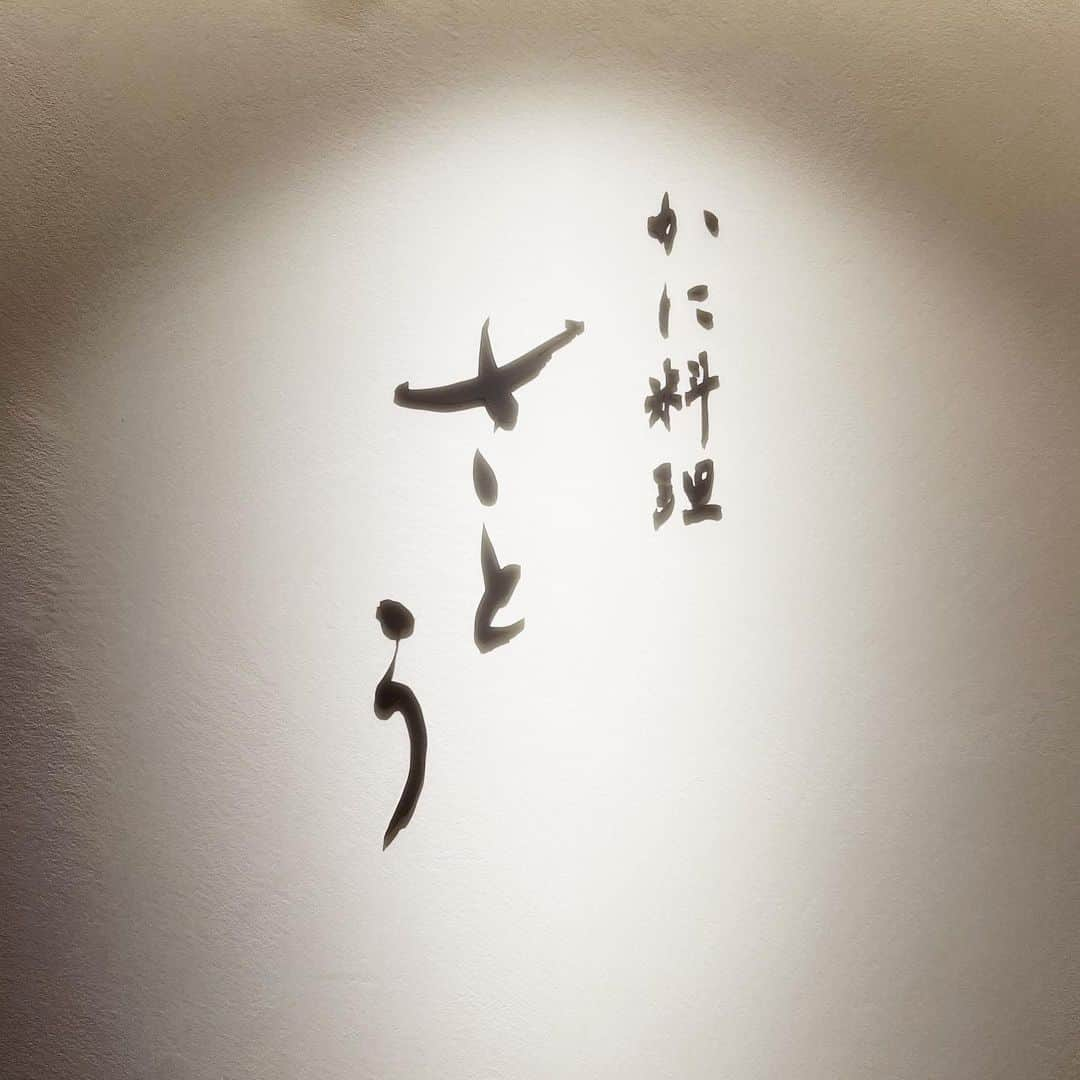 かに料理
さとう